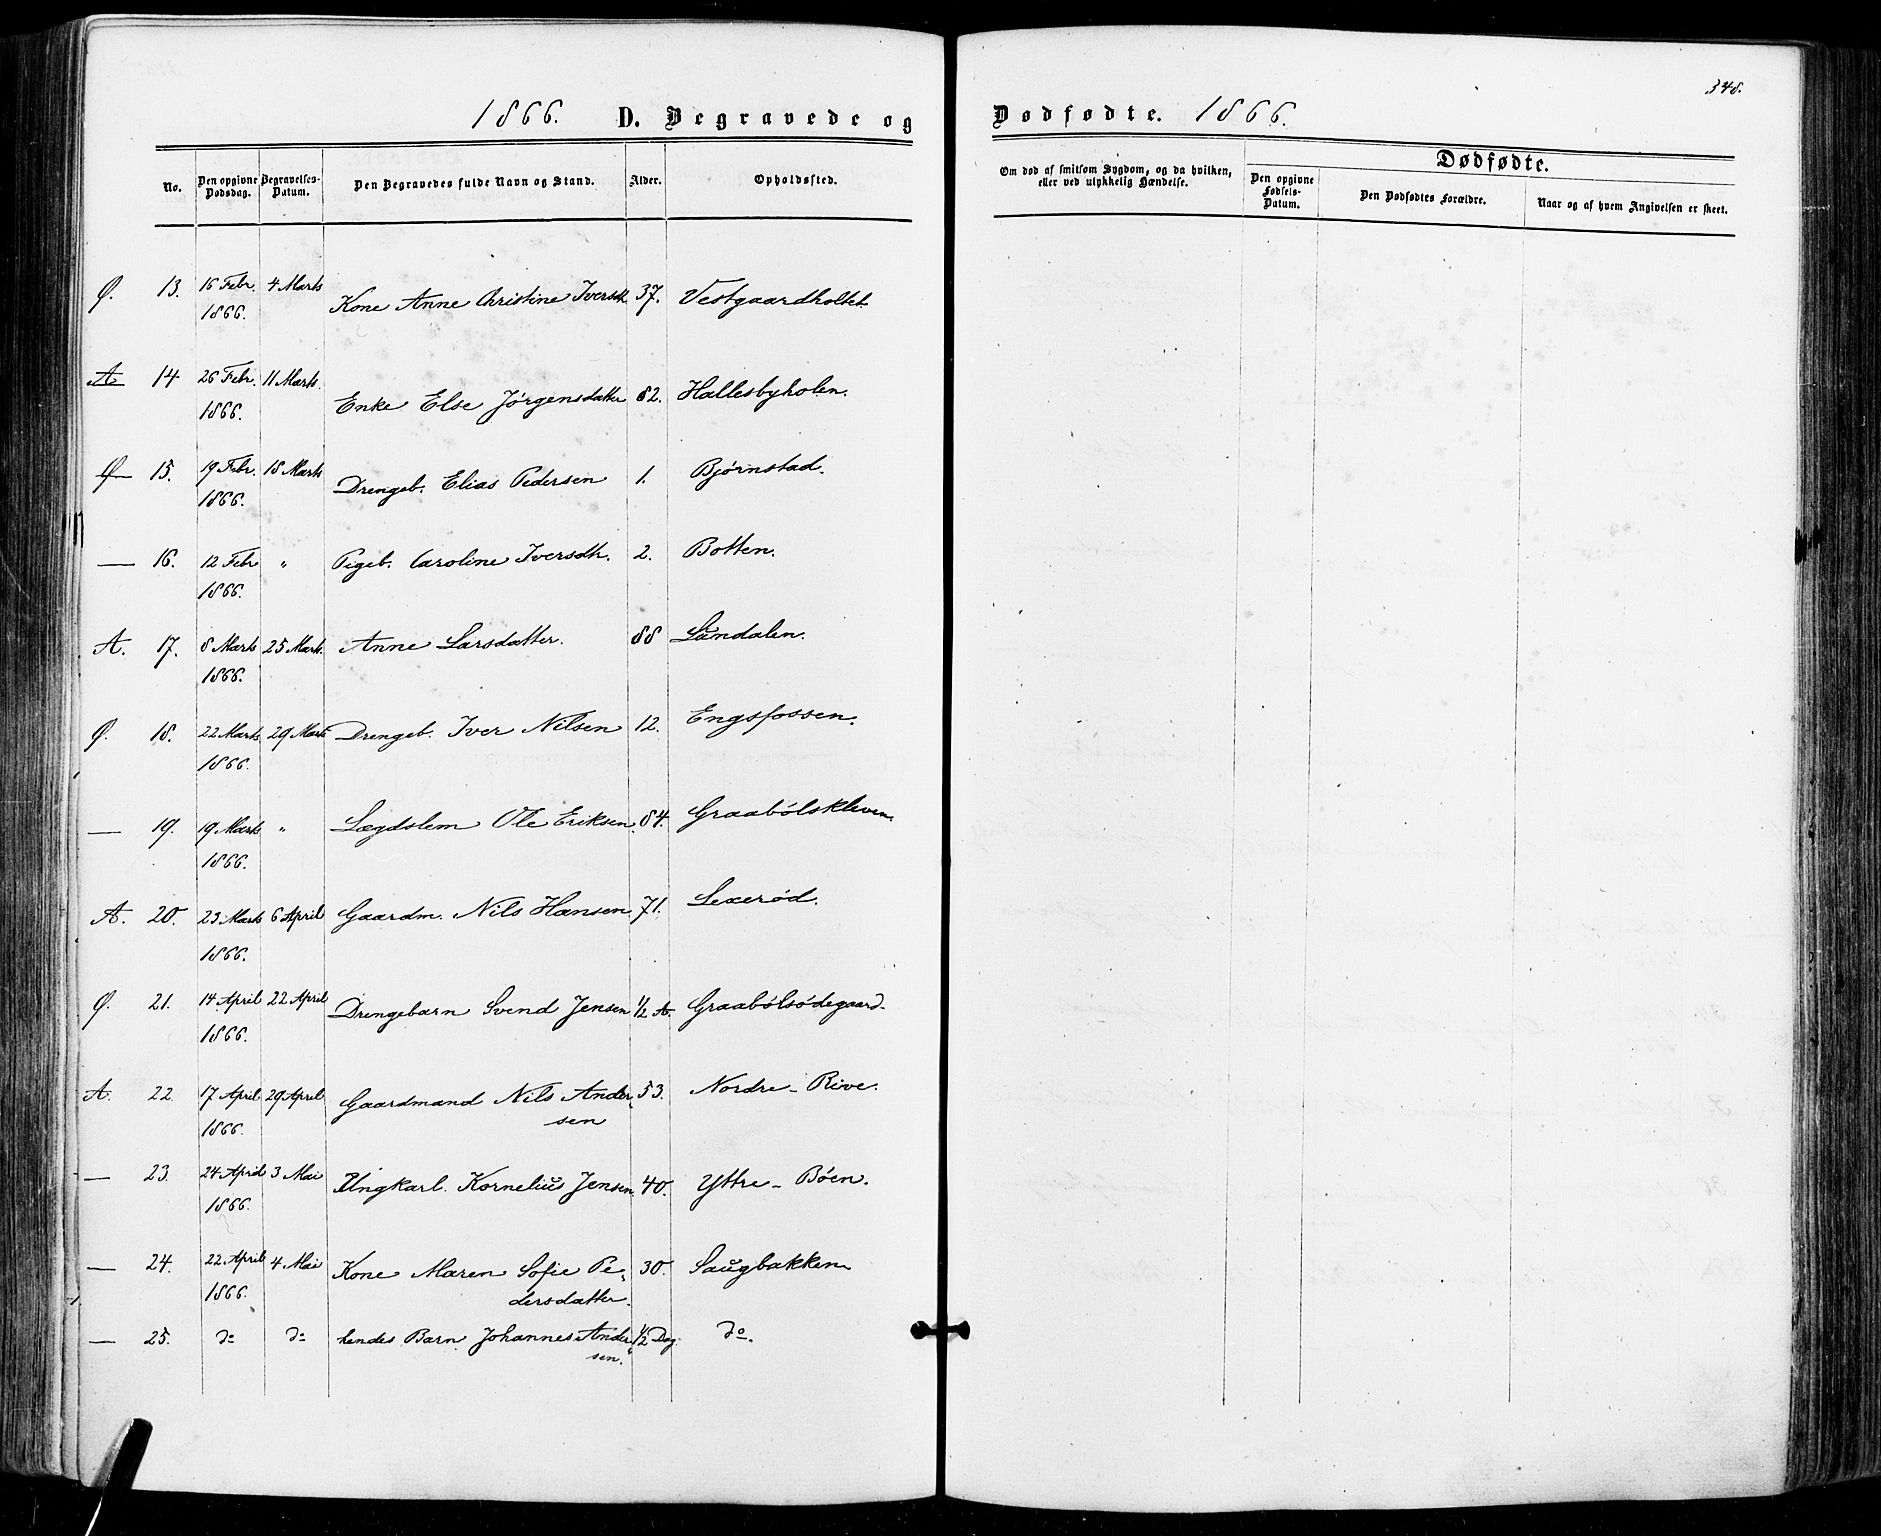 348.
1866. D. Begravede og Dødfødte. 1866.
No. Den opgivne Dødsdag. Begravelses-Datum. Den Begravedes fulde Navn og Stand. Alder. Opholdssted.
Om død af smitsom Sygdom, og da hvilken, eller ved ulykkelig Hændelse.
Dødfødte.
Den opgivne Fødsels-Datum. Den Dødfødtes Forældre. Naar og af hvem Angivelsen er skeet.
Ø. 13. 16 Febr. 4 Marts Kone Anne Christine Iversdt. 37. Vestgaardholtet.
1866.
A 14 26 Febr. 11 Marts. Enke Else Jørgensdatter 82. Hallesbyholen.
1866.
Ø 15. 19 Febr. 18 Marts Drengeb. Elias Pedersen 1. Bjørnstad.
1866.
— 16. 12 Febr „ Pigeb. Caroline Iversdtr. 2. Botten.
1866.
A. 17. 8 Marts 25 Marts. Anne Larsdatter. 88 Sandalen.
1866.
Ø. 18. 22 Marts 29 Marts Drengeb. Iver Nilsen 12. Engsfossen.
1866.
— 19. 19 Marts „ Lægdslem Ole Eriksen. 84. Graabölskleven.
1866.
A. 20. 23 Marts 6 April Gaardm. Nils Hansen 71. Lexerød.
1866.
Ø. 21. 14 April 22 April Drengebarn Svend Jensen 1/2 A. Graabölsödegaard.
1866.
A. 22. 17 April 29 April Gaardmand Nils Ander- 53. Nordre - Rive.
1866. sen
— 23. 24 April 3 Mai Ungkarl. Kornelius Jensen 40. Yttre - Böen.
1866.
— 24. 22 April 4 Mai Kone Maren Sofie Pe- 30. Saugbakken
1866. dersdatter.
— 25. do do hendes Barn Johannes Ander- 1/2 Dag. do.
sen.